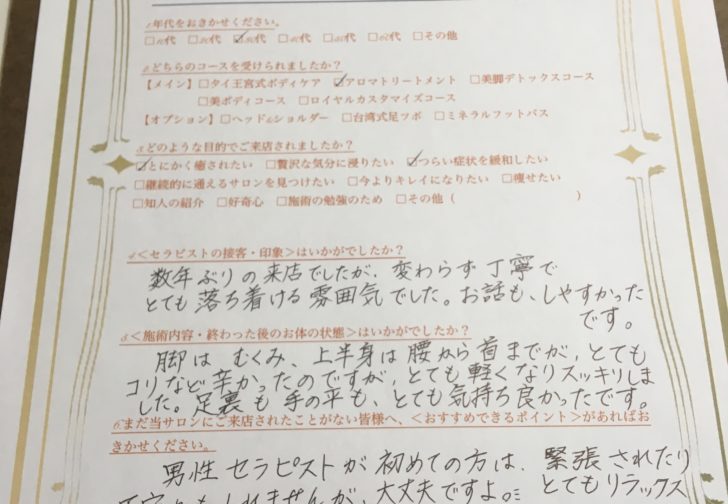 1.年代をおきかせください。
□10代 □20代 ☑30代 □40代 □50代 □60代 □その他
2.どちらのコースを受けられましたか?
【メイン】□タイ王宮式ボディケア ☑アロマトリートメント □美脚デトックスコース
□美ボディコース □ロイヤルカスタマイズコース
【オプション】□ヘッド&ショルダー □台湾式足ツボ □ミネラルフットバス
3.どのような目的でご来店されましたか?
☑とにかく癒されたい □贅沢な気分に浸りたい ☑つらい症状を緩和したい
□継続的に通えるサロンを見つけたい □今よりキレイになりたい □痩せたい
□知人の紹介 □好奇心 □施術の勉強のため □その他 ( )
4.<セラピストの接客・印象>はいかがでしたか?
数年ぶりの来店でしたが、変わらず丁寧で
とても落ち着ける雰囲気でした。お話も、しやすかった
です。
5.<施術内容・終わった後のお体の状態>はいかがでしたか?
脚はむくみ、上半身は腰から首までが、とても
コリなど辛かったのですが、とても軽くなりスッキリしま
した。足裏も手の平も、とても気持ち良かったです。
6.まだ当サロンにご来店されたことがない皆様へ、<おすすめできるポイント>があればお
きかせください。
男性セラピストが初めての方は、緊張されたり
かもしれませんが、大丈夫ですよ。とてもリラックス